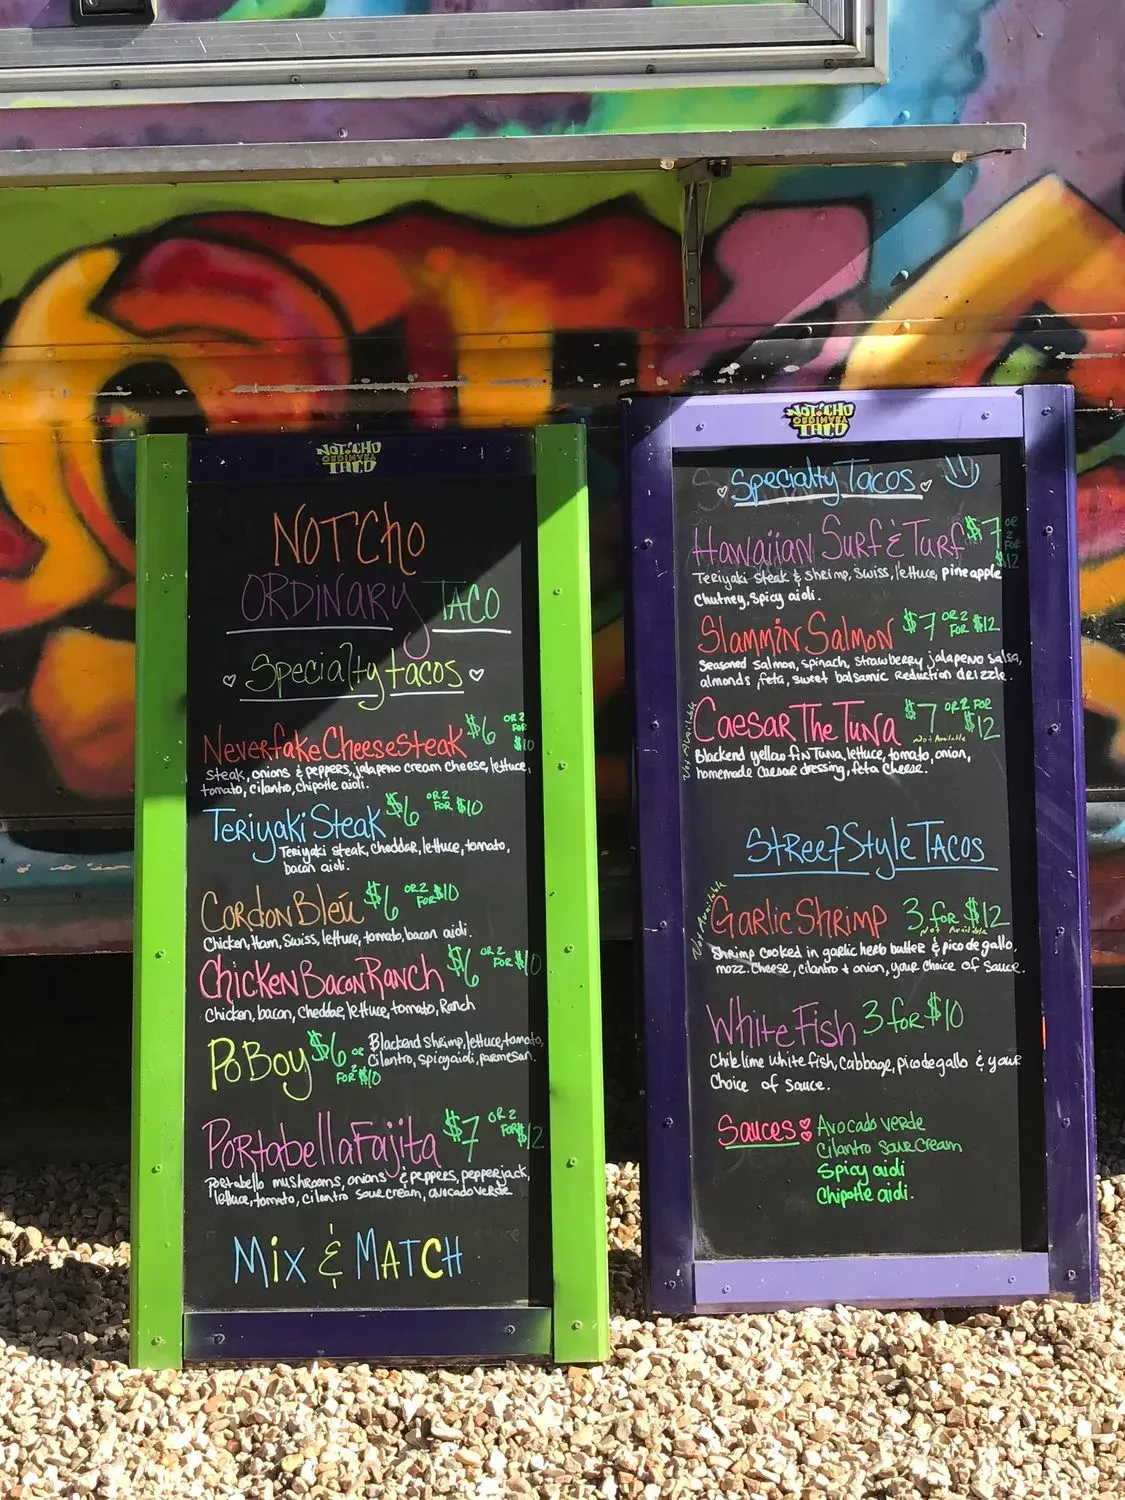 NOT'CHO
ORDINARY
TACO
NOTCho
ORDINARY TACO
Specialty tacos
Neverfake CheeseSteak $6 OR 2 FOR $10
Steak, onions & peppers, jalapeno cream cheese, lettuce,
tomato, cilantro, chipotle aioli.
Teriyaki Steak $6 OR 2 FOR $10
Teriyaki steak, cheddar, lettuce, tomato,
bacon aioli.
Cordon Bleú $6 OR 2 FOR $10
Chicken, Ham, Swiss, lettuce, tomato, bacon aioli.
Chicken Bacon Ranch $6 OR 2 FOR $10
Chicken, bacon, Cheddar, lettuce, tomato, Ranch
Po Boy $6 or 2 FOR $10
Blackend shrimp, lettuce, tomato,
Cilantro, spicy aioli, parmesan.
Portabella Fajita $7 OR 2 FOR $12
Portabello mushrooms, onions & peppers, pepperjack,
lettuce, tomato, cilantro sour cream, avocado verde.
Mix & MATCH
NOT'CHO
ORDINARY
TACO
Specialty Tacos
Hawaiian Surf & Turf $7 OR 2 FOR $12
Teriyaki steak & shrimp, swiss, lettuce, pineapple
Chutney, spicy aioli.
Slammin Salmon $7 OR 2 FOR $12
Seasoned salmon, spinach, strawberry jalapeno salsa,
almonds, feta, sweet balsamic reduction drizzle.
Caesar The Tuna $7 OR 2 FOR $12
Not Available
Not Available
Blackend yellow fin Tuna, lettuce, tomato, onion,
homemade Caesar dressing, feta Cheese.
Street Style TACOS
Not Available
Garlic Shrimp 3 for $12
Not Available
Shrimp cooked in garlic herb butter & pico de gallo,
mozz. Cheese, cilantro + onion, your choice of sauce.
White Fish 3 for $10
Chile lime white fish, Cabbage, pico de gallo & your
Choice of sauce.
Sauces: Avocado verde
Cilantro sour cream
Spicy aioli
Chipotle aioli.